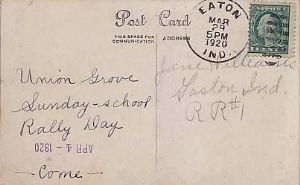 Post Card
THIS SPACE FOR
COMMUNICATION
ADDRESS
EATON
MAR
29
5PM
1920
IND.
Union Grove
Sunday-school
Rally Day
APR 4 - 1920
- Come -
Jane Williams
Gaston Ind.
RR#1